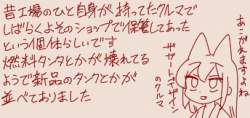 昔工場のひと自身が持ってたクルマで
しばらくよそのショップで保管してあった
という個体らしいです
燃料タンクとかが壊れてる
ようで新品のタンクとかが
並べておりました
あこがれますよね
ザガートデザイン
のクルマ